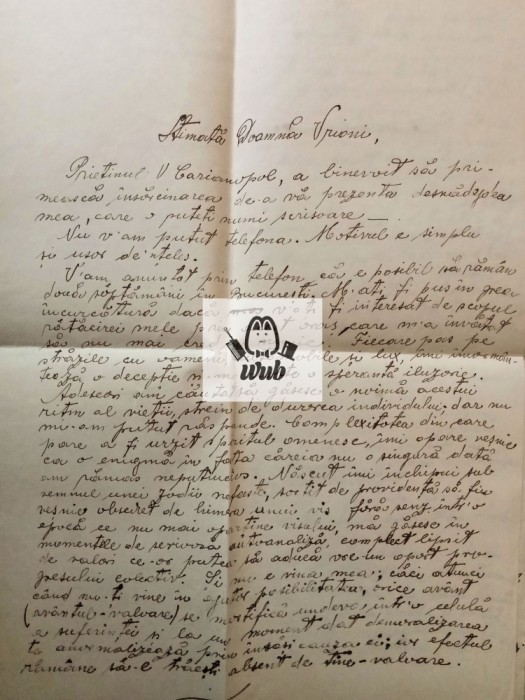 Stimată Doamnă Vrioni,
Prietinul V Carianopol, a binevoit să pri-
mească însărcinarea de-a vă prezenta desnădejdea
mea, care o puteti numi scrisoare —
Nu v'am putut telefona. Motivul e simplu
și ușor de'nțeles.
V'am anunțat prin telefon că e posibil să rămân
două săptămâni în București. M-ați fi pus în grea
încurcătură dacă v'ati fi interesat de scopul
rătăcirei mele oraș, care m-a învățat
să nu mai Fiecare pas pe
străzile cu oameni și lux, îmi
o decepție o speranță iluzorie.
Adeseori am să găsesc o noimă acestui
ritm al vieții, strein de durerea individului, dar nu
mi-am putut răspunde. Complexitatea din care
pare a fi urzit spiritul omenesc, îmi apare veșnic
ca o enigmă în fața căreia nu o singură dată
am rămas neputincios. Născut îmi închipui sub
semnul unei zodii nefaste, sortit de providență să fiu
veșnic obsedat de himera unui vis fără sens, într'o
epocă ce nu mai aparține visului, mă găsesc în
momentele de serioază autoanaliză, complect lipsit
de valori ce-ar putea să aducă vre-un aport pro-
gresului colectiv. Și nu e vina mea; căci atunci
când nu-ți vine în ajutor posibilitatea, orice avânt
(avântul-valoare) se mortifică undeva într'o celulă
a suferinții și la un moment dat demoralizarea
ta anormalizează prin însăși cauza ei; iar efectul
rămâne să-l trăești absent de tine-valoare.
wub